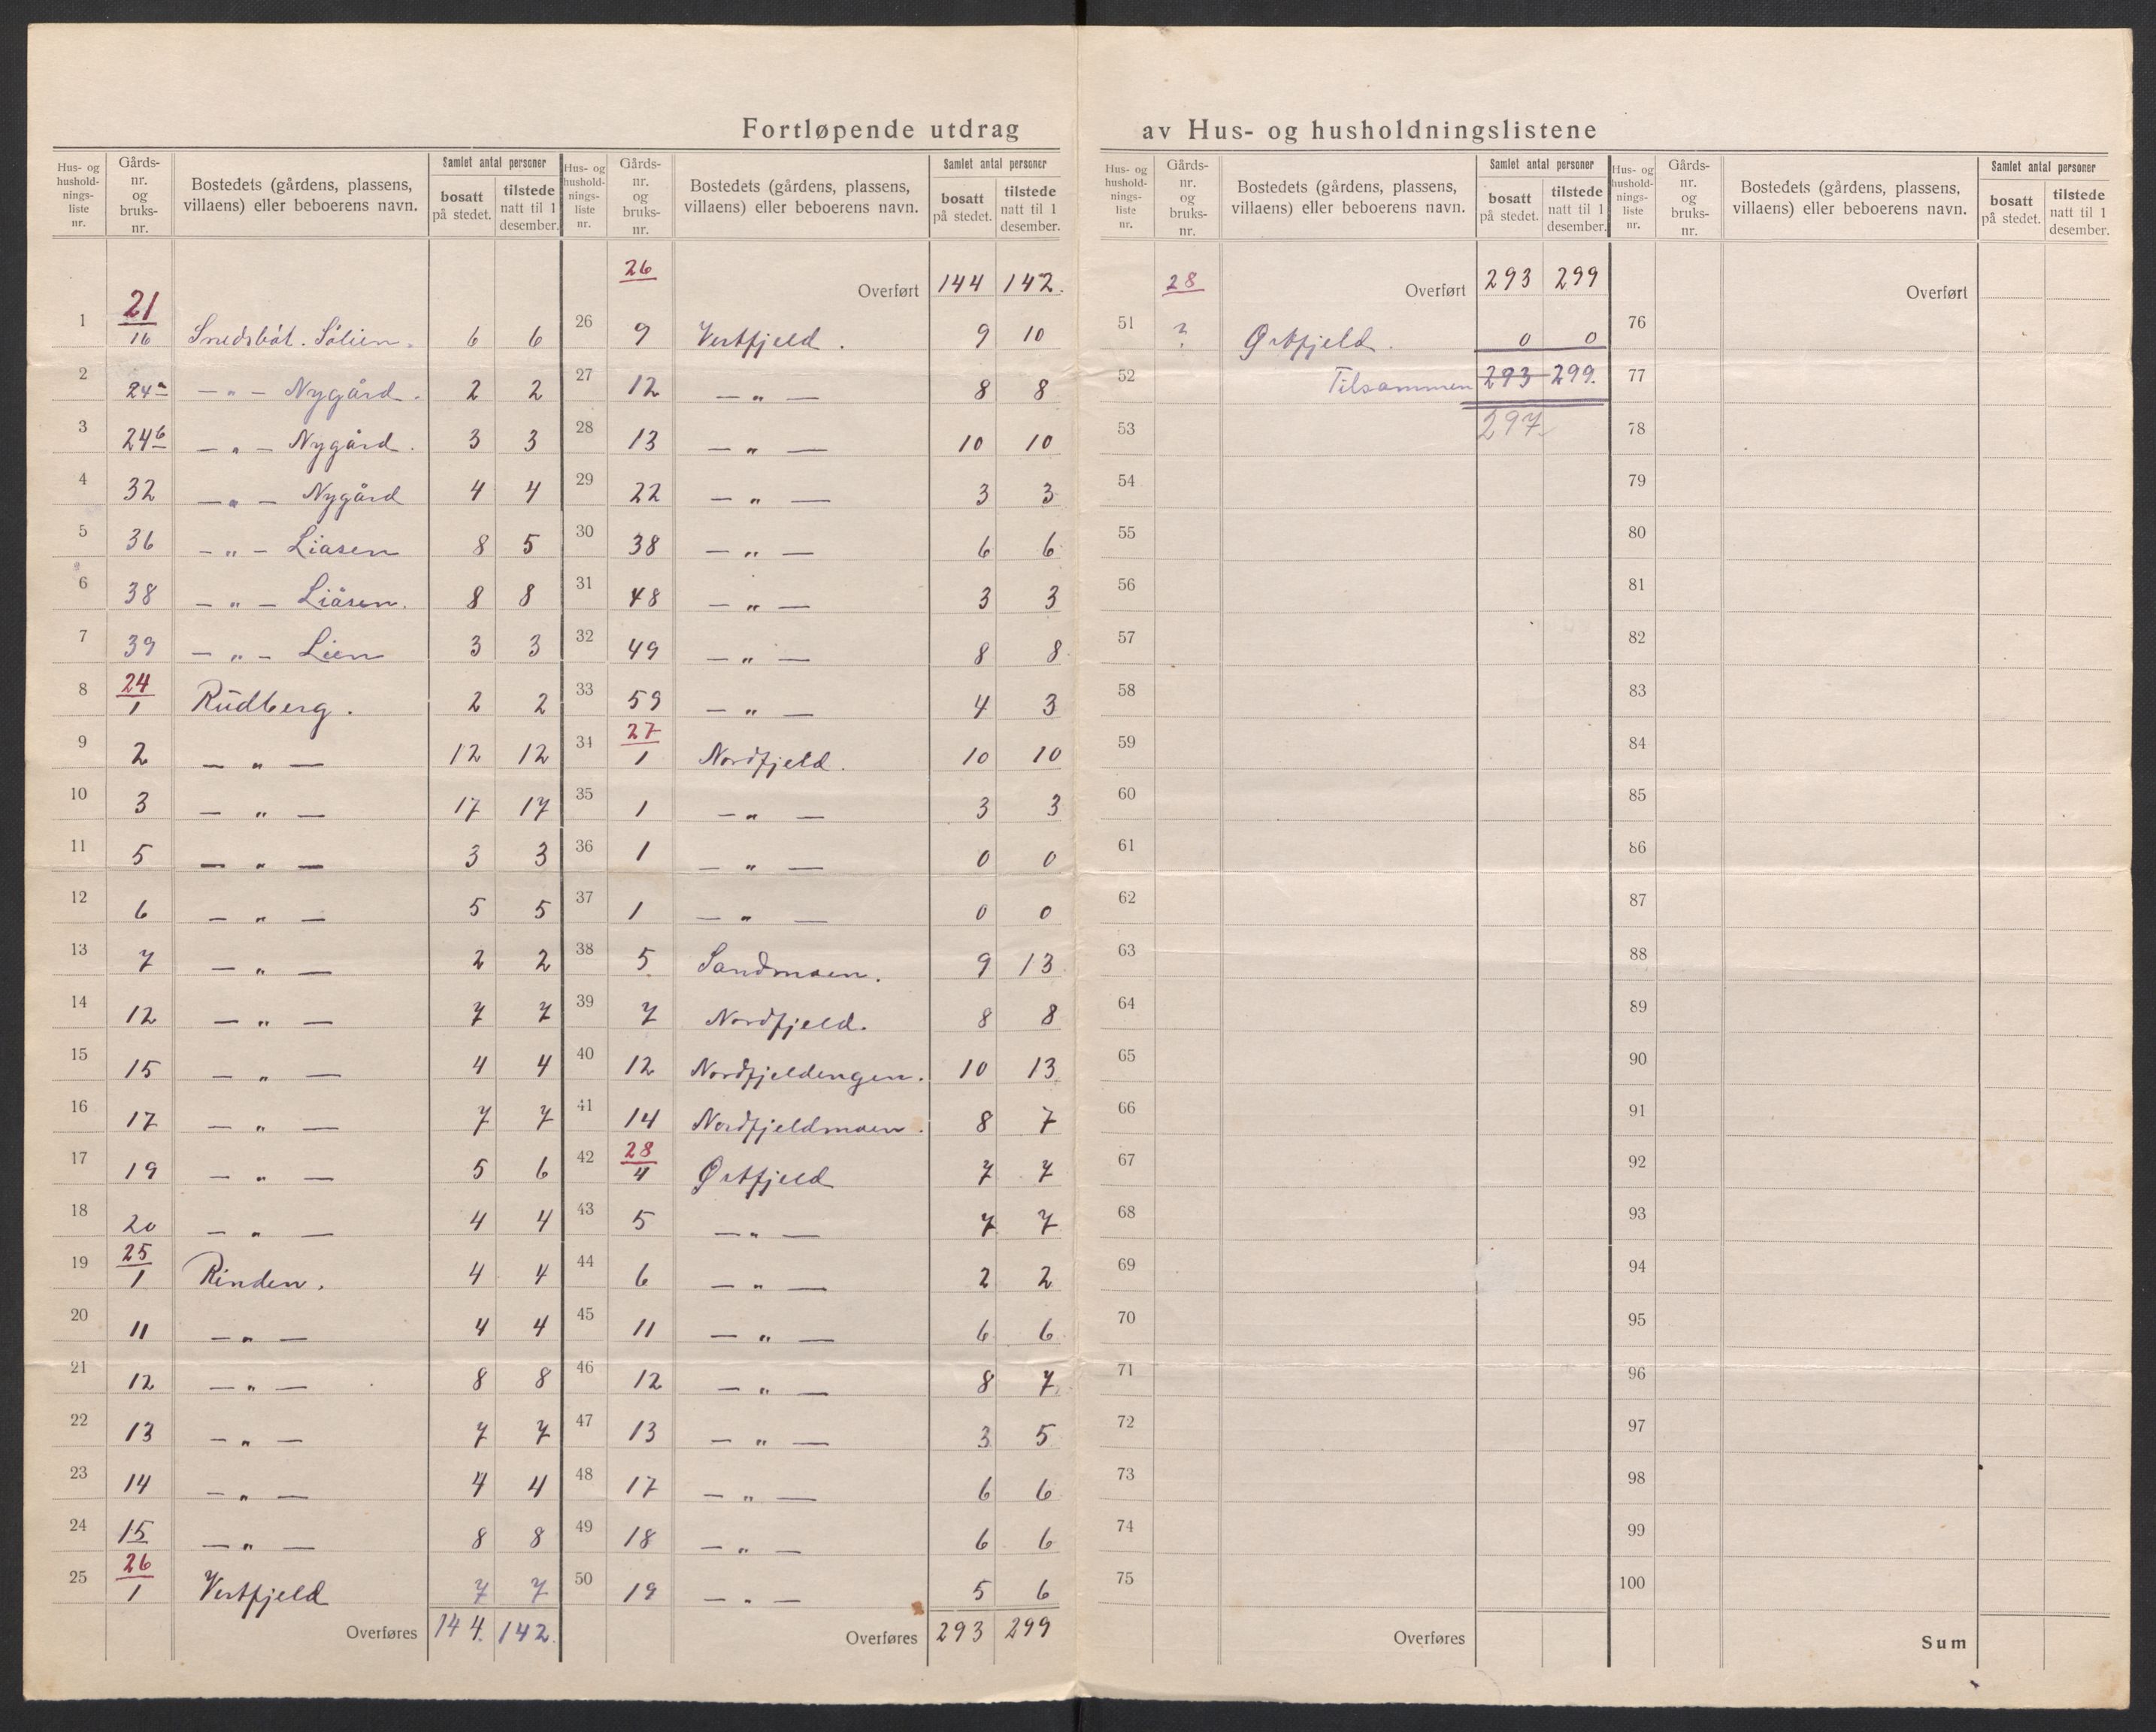 Fortløpende utdrag av Hus- og husholdningslistene
Hus- og husholdnings-liste nr. | Gårds-nr. og bruks-nr. | Bostedets (gårdens, plassens, villaens) eller beboerens navn. | Samlet antal personer bosatt på stedet. | tilstede natt til 1 desember.
21
1 | 16 | Snedsbøl. Sólien. | 6 | 6
2 | 24a | — „ — Nygård. | 2 | 2
3 | 24b | — „ — Nygård. | 3 | 3
4 | 32 | — „ — Nygård | 4 | 4
5 | 36 | — „ — Liasen | 8 | 5
6 | 38 | — „ — Liåsen. | 8 | 8
7 | 39 | — „ — Lien | 3 | 3
8 | 24/1 | Rudberg. | 2 | 2
9 | 2 | — „ — | 12 | 12
10 | 3 | — „ — | 17 | 17
11 | 5 | — „ — | 3 | 3
12 | 6 | — „ — | 5 | 5
13 | 7 | — „ — | 2 | 2
14 | 12 | — „ — | 7 | 7
15 | 15 | — „ — | 4 | 4
16 | 17 | — „ — | 7 | 7
17 | 19 | — „ — | 5 | 6
18 | 20 | — „ — | 4 | 4
19 | 25/1 | Rinden. | 4 | 4
20 | 11 | — „ — | 4 | 4
21 | 12 | — „ — | 8 | 8
22 | 13 | — „ — | 7 | 7
23 | 14 | — „ — | 4 | 4
24 | 15 | — „ — | 8 | 8
25 | 26/1 | Vestfjeld | 7 | 7
Overføres | 144. | 142.
Hus- og husholdnings-liste nr. | Gårds-nr. og bruks-nr. | Bostedets (gårdens, plassens, villaens) eller beboerens navn. | Samlet antal personer bosatt på stedet. | tilstede natt til 1 desember.
26 | Overført | 144 | 142.
26 | 9 | Vestfjeld. | 9 | 10
27 | 12 | — „ — | 8 | 8
28 | 13 | — „ — | 10 | 10
29 | 22 | — „ — | 3 | 3
30 | 38 | — „ — | 6 | 6
31 | 48 | — „ — | 3 | 3
32 | 49 | — „ — | 8 | 8
33 | 59 | — „ — | 4 | 3
34 | 27/1 | Nordfjeld. | 10 | 10
35 | 1 | — „ — | 3 | 3
36 | 1 | — „ — | 0 | 0
37 | 1 | — „ — | 0 | 0
38 | 5 | Sandmoen. | 9 | 13
39 | 7 | Nordfjeld. | 8 | 8
40 | 12 | Nordfjeldengen. | 10 | 13
41 | 14 | Nordfjeldmoen. | 8 | 7
42 | 28/4 | Østfjeld | 7 | 7
43 | 5 | — „ — | 7 | 7
44 | 6 | — „ — | 2 | 2
45 | 11 | — „ — | 6 | 6
46 | 12 | — „ — | 8 | 7
47 | 13 | — „ — | 3 | 5
48 | 17 | — „ — | 6 | 6
49 | 18 | — „ — | 6 | 6
50 | 19 | — „ — | 5 | 6
Overføres | 293 | 299
Hus- og husholdnings-liste nr. | Gårds-nr. og bruks-nr. | Bostedets (gårdens, plassens, villaens) eller beboerens navn. | Samlet antal personer bosatt på stedet. | tilstede natt til 1 desember.
28 | Overført | 293 | 299
51 | ? | Østfjeld. | 0 | 0
52 | Tilsammen | 293 | 299.
53 | 297
54
55
56
57
58
59
60
61
62
63
64
65
66
67
68
69
70
71
72
73
74
75
Overføres
Hus- og husholdnings-liste nr. | Gårds-nr. og bruks-nr. | Bostedets (gårdens, plassens, villaens) eller beboerens navn. | Samlet antal personer bosatt på stedet. | tilstede natt til 1 desember.
Overført
76
77
78
79
80
81
82
83
84
85
86
87
88
89
90
91
92
93
94
95
96
97
98
99
100
Sum